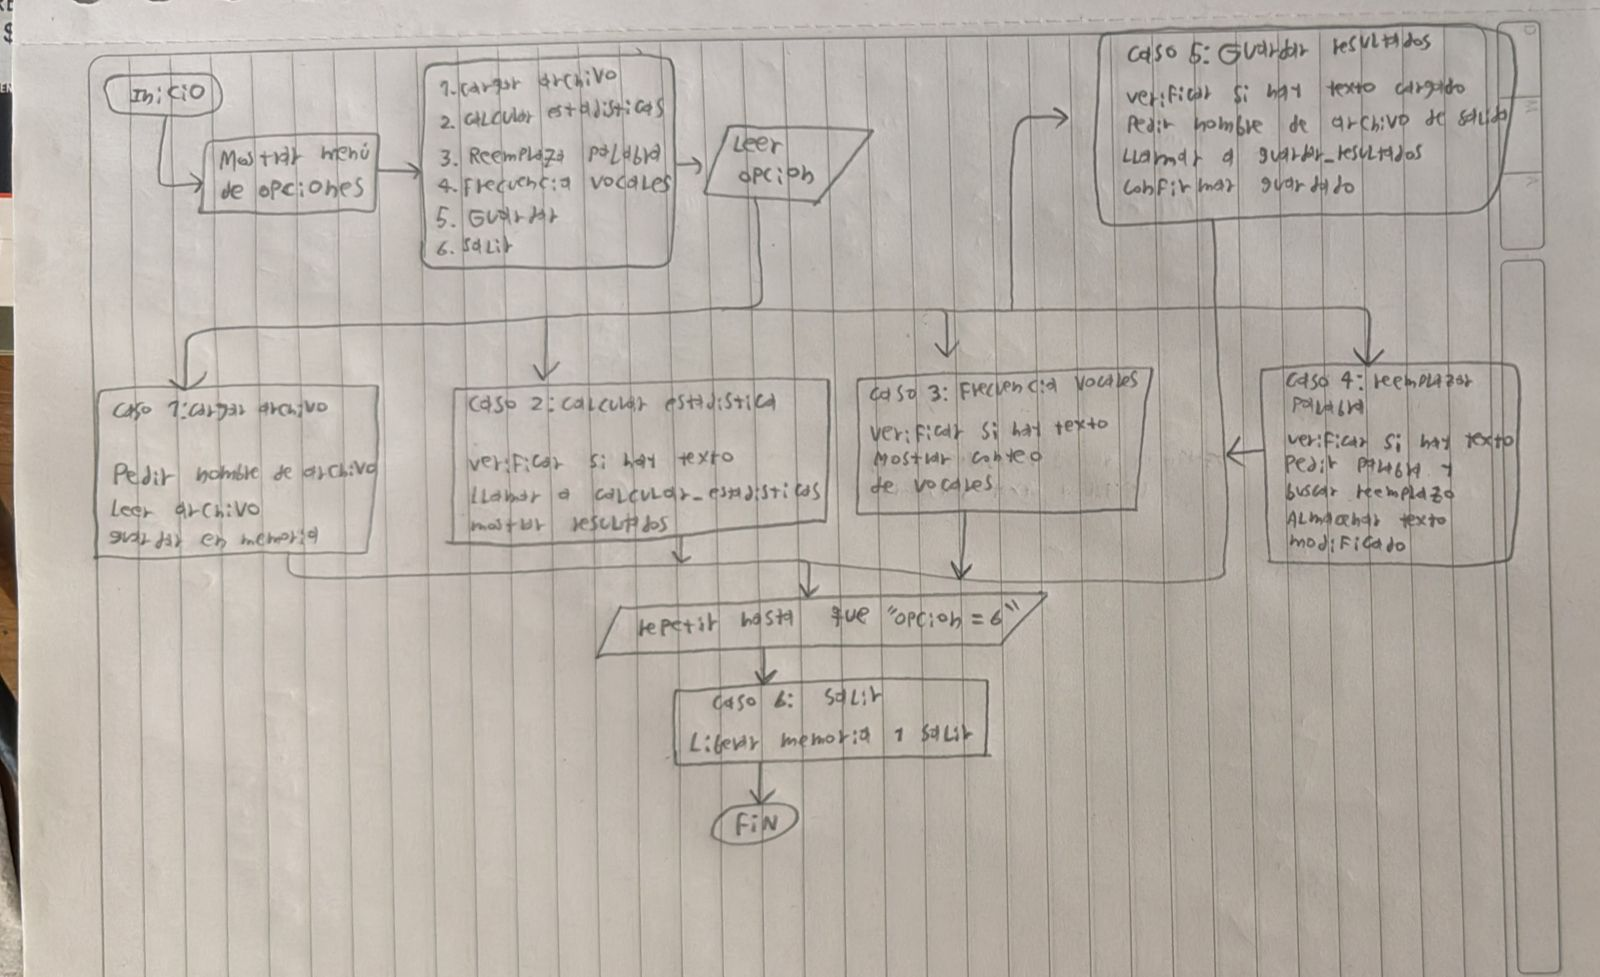 Inicio
Mostrar menú
de opciones
1. Cargar archivo
2. calcular estadisticas
3. Reemplaza palabra
4. Frecuencia vocales
5. Guardar
6. salir
Leer
opcion
caso 5: Guardar resultados
verificar si hay texto cargado
Pedir nombre de archivo de salida
Llamar a guardar_resultados
confirmar guardado
caso 1: cargar archivo
Pedir nombre de archivo
Leer archivo
guardar en memoria
caso 2: calcular estadistica
verificar si hay texto
Llamar a calcular_estadisticas
mostrar resultados
caso 3: Frecuencia vocales
verificar si hay texto
Mostrar conteo
de vocales
caso 4: reemplazar
palabra
verificar si hay texto
Pedir palabra y
buscar reemplazo
Almacenar texto
modificado
repetir hasta que "opcion = 6"
caso 6: salir
Liberar memoria y salir
FiN